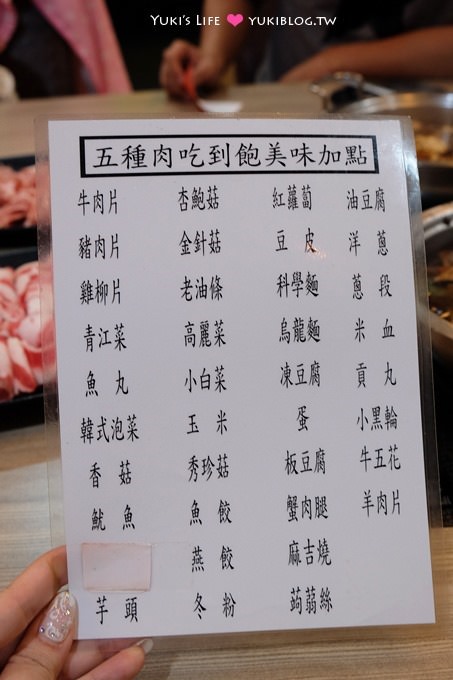 Yuki's Life ❤ yukiblog.tw
五種肉吃到飽美味加點
牛肉片 杏鮑菇 紅蘿蔔 油豆腐
豬肉片 金針菇 豆皮 洋蔥
雞柳片 老油條 科學麵 蔥段
青江菜 高麗菜 烏龍麵 米血
魚丸 小白菜 凍豆腐 貢丸
韓式泡菜 玉米 蛋 小黑輪
香菇 秀珍菇 板豆腐 牛五花
魷魚 魚餃 蟹肉腿 羊肉片
燕餃 麻吉燒
芋頭 冬粉 蒟蒻絲